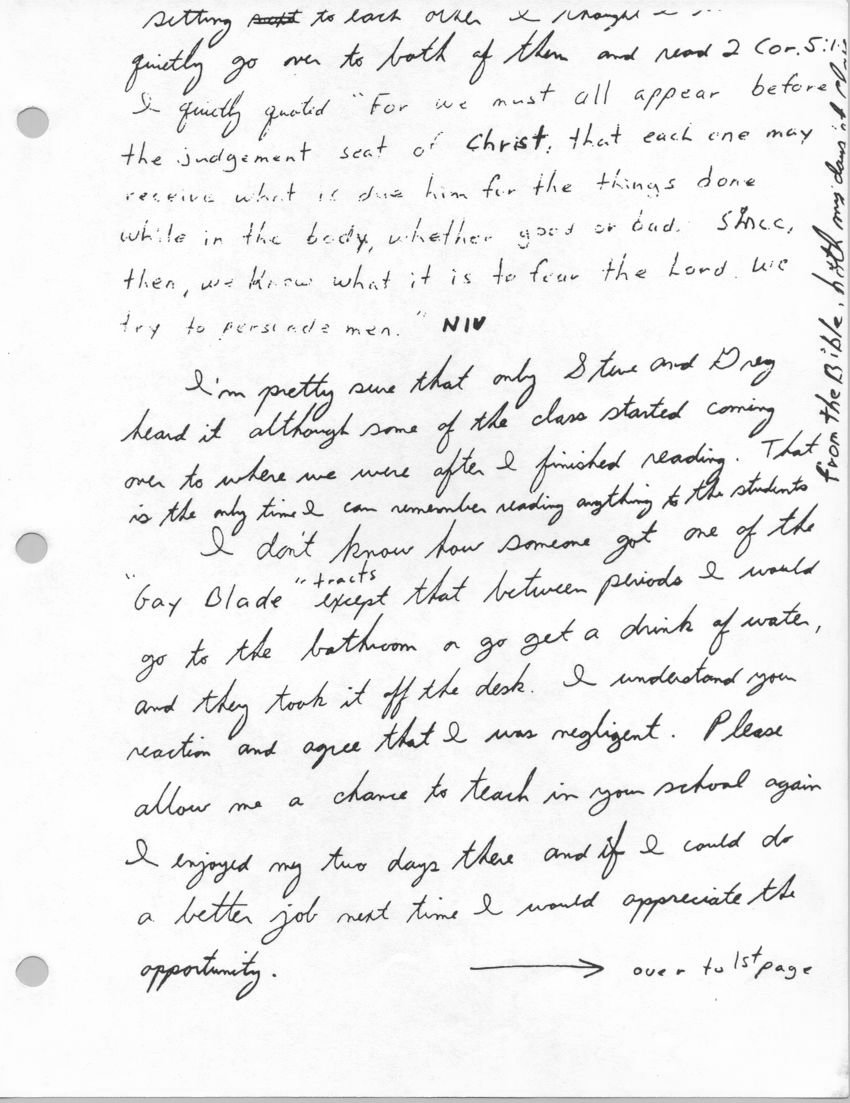 setting to each other I thought
quietly go over to both of them and read 2 Cor. 5:1
I quietly quoted "For we must all appear before
the judgement seat of Christ, that each one may
receive what is due him for the things done
while in the body, whether good or bad. Since,
then, we know what it is to fear the Lord, we
try to persuade men." NIV
I'm pretty sure that only Steve and Greg
heard it although some of the class started coming
over to where we were after I finished reading. That
is the only time I can remember reading anything to the students
from the Bible,
I don't know how someone got one of the
"Gay Blade" tracts except that between periods I would
go to the bathroom or go get a drink of water,
and they took it off the desk. I understand your
reaction and agree that I was negligent. Please
allow me a chance to teach in your school again
I enjoyed my two days there and if I could do
a better job next time I would appreciate the
opportunity. → over to 1st page